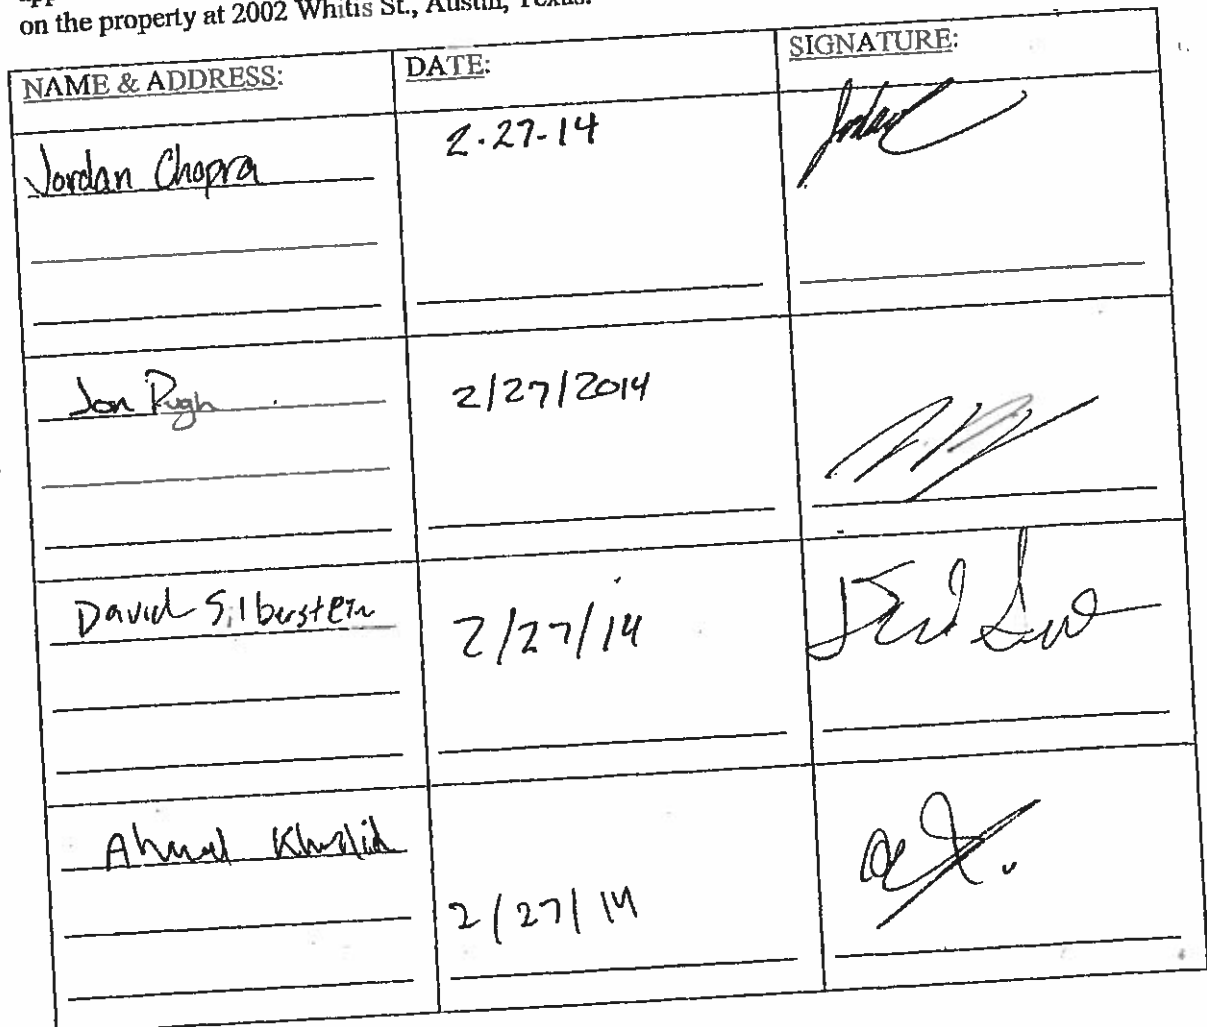 on the property at 2002 Whitis St., Austin, Texas.
NAME & ADDRESS: DATE: SIGNATURE:
Jordan Chopra 2-27-14 Jordan
Jon Pugh 2/27/2014
David Silberstein 2/27/14
Ahmed Khalid 2/27/14